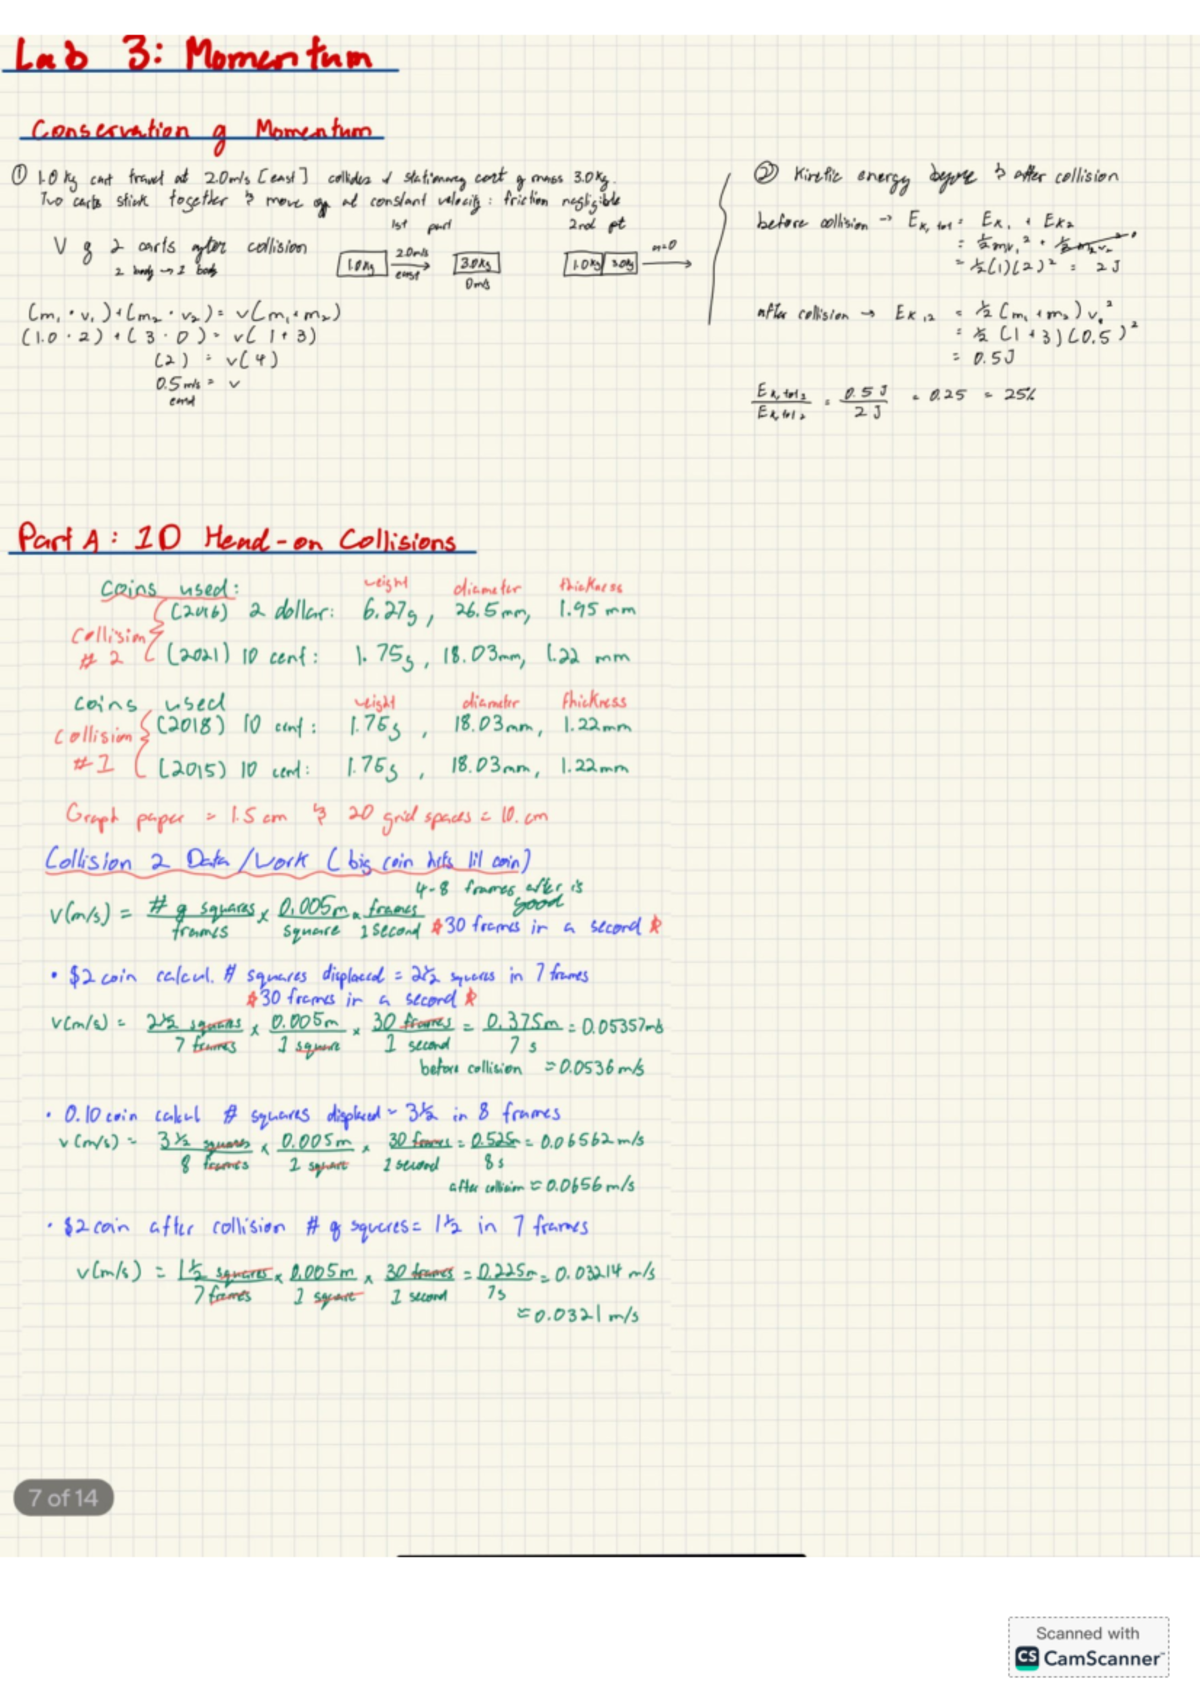 Lab 3: Momentum
Conservation of Momentum
① 1.0 kg cart travel at 2.0m/s [east] collides stationary cart of mass 3.0kg.
Two carts stick together & move off at constant velocity: friction negligible
1st part 2nd pt
V of 2 carts after collision
2 body → 1 body
1.0kg 2.0m/s east 3.0kg 0m/s
1.0kg 3.0kg
(m₁ · v₁) + (m₂ · v₂) = v(m₁ + m₂)
(1.0 · 2) + (3 · 0) = v(1 + 3)
(2) = v(4)
0.5 m/s = v
② Kinetic energy before & after collision
before collision → Ek, tot = Ek₁ + Ek₂
= ½mv₁² + ½m₂v₂ 0
= ½(1)(2)² = 2J
after collision → Ek 12 = ½(m₁ + m₂)v²
= ½(1+3)(0.5)²
= 0.5J
= 0.5J / 2J = 0.25 = 25%
Part A: 1D Head-on Collisions
Coins used: weight diameter thickness
(2016) 2 dollar: 6.27g, 26.5mm, 1.95 mm
Collision # 2
(2021) 10 cent: 1.75g, 18.03mm, 1.22 mm
coins used weight diameter thickness
(2018) 10 cent: 1.75g, 18.03mm, 1.22mm
Collision #1
(2015) 10 cent: 1.75g, 18.03mm, 1.22mm
Graph paper = 1.5 cm & 20 grid spaces = 10. cm
Collision 2 Data/Work (big coin hits lil coin)
4-8 frames after is good
v(m/s) = # of squares / frames × 0.005m / square × frames / 1 second *30 frames in a second*
• $2 coin calcul. # squares displaced = 2½ squares in 7 frames
*30 frames in a second*
v(m/s) = 2½ squares / 7 frames × 0.005m / 1 square × 30 frames / 1 second = 0.375m / 7 s = 0.05357m/s
before collision ≈ 0.0536m/s
• 0.10 coin calcul # squares displaced = 3½ in 8 frames
v(m/s) = 3½ squares / 8 frames × 0.005m / 1 square × 30 frames / 1 second = 0.525m / 8s = 0.06562m/s
after collision ≈ 0.0656m/s
• $2 coin after collision # of squares = 1½ in 7 frames
v(m/s) = 1½ squares / 7 frames × 0.005m / 1 square × 30 frames / 1 second = 0.225m / 7s = 0.03214 m/s
≈ 0.0321 m/s
7 of 14
Scanned with
CS CamScanner